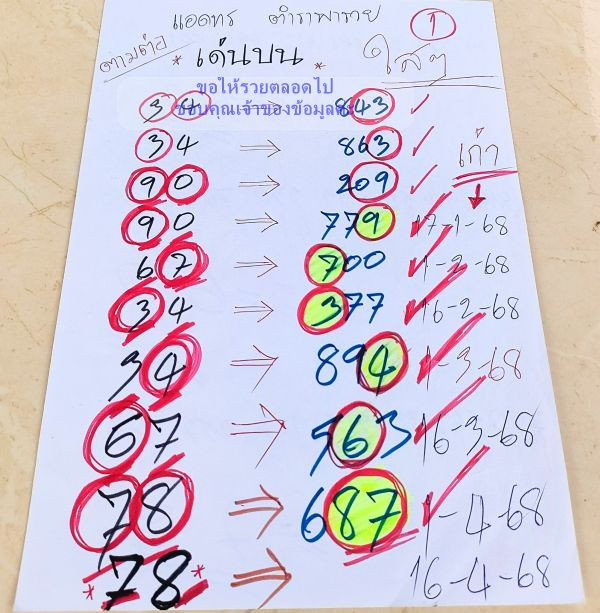 แอดทร ตำราพารวย 1
ตามต่อ * เด่นบน * ใสๆ
ขอให้รวยตลอดไป
ขอบคุณเจ้าของข้อมูลค่ะ
34 → 843 ✓
34 → 863 ✓ เก่า
90 → 209 ✓
90 → 779 ✓ 17-1-68
67 → 700 ✓ 1-2-68
34 → 377 ✓ 16-2-68
34 → 894 ✓ 1-3-68
67 → 563 ✓ 16-3-68
78 → 687 ✓ 1-4-68
*78* → 16-4-68